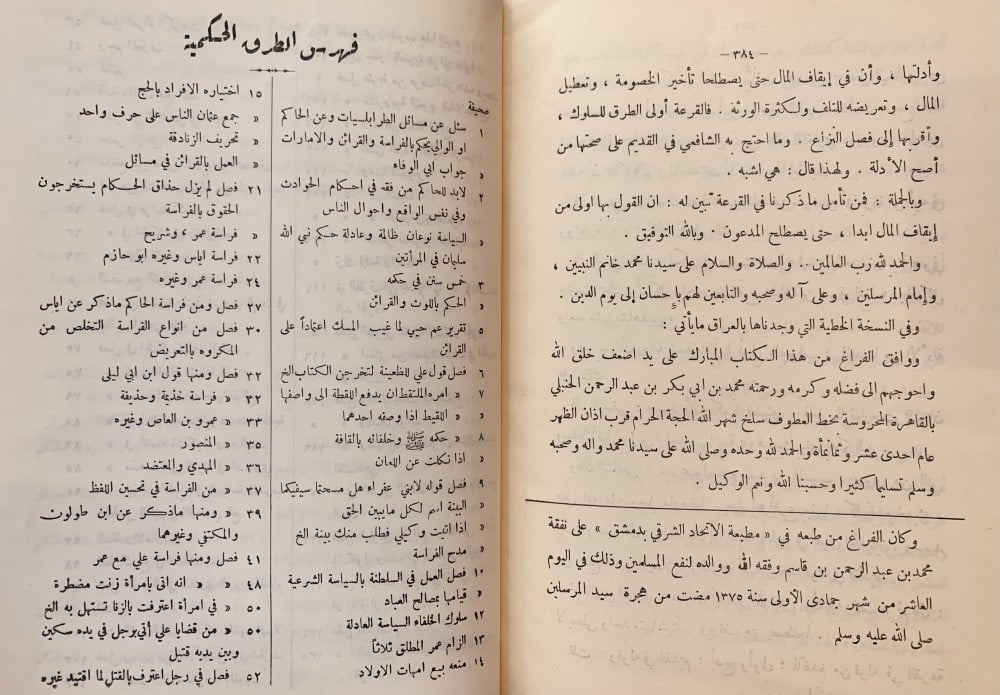 — ٣٨٤ —
وأدلتها ، وأن في إيقاف المال حتى يصطلحا تأخير الخصومة ، وتعطيل
المال ، وتعريضه للتلف ولكثرة الورثة . فالقرعة أولى الطرق للسلوك ،
وأقربها إلى فصل النزاع . وما احتج به الشافعي في القديم على صحتها من
أصح الأدلة . ولهذا قال : هي اشبه .
وبالجملة : فمن تأمل ما ذكرنا في القرعة تبين له : ان القول بها اولى من
إيقاف المال ابدا ، حتى يصطلح المدعون . وبالله التوفيق .
والحمد لله رب العالمين .. والصلاة والسلام على سيدنا محمد خاتم النبيين ،
وإمام المرسلين ، وعلى آله وصحبه والتابعين لهم بإحسان إلى يوم الدين .
وفي النسخة الخطية التي وجدناها بالعراق مايأتي :
ووافق الفراغ من هذا الكتاب المبارك على يد اضعف خلق الله
واحوجهم الى فضله وكرمه ورحمته محمد بن ابي بكر بن عبد الرحمن الحنبلي
بالقاهرة المحروسة بخط العطوف سلخ شهر الله الحجة الحرام قرب اذان الظهر
عام احدى عشر وثمانمأة والحمد لله وحده وصلى الله على سيدنا محمد واله وصحبه
وسلم تسليما كثيرا وحسبنا الله ونعم الوكيل .
وكان الفراغ من طبعه في « مطبعة الاتحاد الشرقي بدمشق » على نفقة
محمد بن عبد الرحمن بن قاسم وفقه الله ووالده لنفع المسلمين وذلك في اليوم
العاشر من شهر جمادى الاولى سنة ١٣٧٥ مضت من هجرة سيد المرسلين
صلى الله عليه وسلم .
فهرس الطرق الحكمية
صحيفة
١ سئل عن مسائل الطرابلسيات وعن الحاكم
او الوالي يحكم بالفراسة والقرائن والامارات
« جواب ابي الوفاء
٢ لابد للحاكم من فقه في احكام الحوادث
وفي نفس الواقع واحوال الناس
« السياسة نوعان ظالمة وعادلة حكم نبي الله
سليمان في المرأتين
٣ خمس سنن في حكمه
« الحكم باللوث والقرائن
٥ تقرير عم حيي لما غيب المسك اعتماداً على
القرائن
٦ فصل قول علي للظعينة لتخرجن الكتاب الخ
٧ « امره الملتقط ان يدفع اللقطة الى واصفها
« « اللقيط اذا وصفه احدهما
٨ « حكمه ﷺ وخلفائه بالقافة
« اذا نكلت عن اللعان
٩ فصل قوله لابني عفراء هل مسحتما سيفيكما
« البينة اسم لكل مايبين الحق
« اذا اتيت وكيلي فطلب منك بينة الخ
« مدح الفراسة
١٠ فصل العمل في السلطنة بالسياسة الشرعية
« قيامها بمصالح العباد
١٢ سلوك الخلفاء السياسة العادلة
١٣ الزام عمر المطلق ثلاثاً
١٤ منعه بيع امهات الاولاد
١٥ اختياره الافراد بالحج
« جمع عثمان الناس على حرف واحد
« تحريف الزنادقة
« العمل بالقرائن في مسائل
٢١ فصل لم يزل حذاق الحكام يستخرجون
الحقوق بالفراسة
« فراسة عمر ، وشريح
٢٢ فراسة اياس وغيره ابو حازم
٢٤ فراسة عمر وغيره
٢٧ فصل ومن فراسة الحاكم ماذكر عن اياس
٣٠ فصل من انواع الفراسة التخلص من
المكروه بالتعريض
٣٢ فصل ومنها قول ابن ابي ليلى
٣٢ « فراسة خذيمة وحذيفة
٣٣ « عمرو بن العاص وغيره
٣٥ « المنصور
٣٦ « المهدي والمعتضد
٣٧ « من الفراسة في تحسين اللفظ
٣٩ « ومنها ماذكر عن ابن طولون
والمكتفي وغيرهما
٤١ فصل ومنها فراسة علي مع عمر
٤٨ « « انه اتى بامرأة زنت مضطرة
٥٠ « في امرأة اعترفت بالزنا تستهل به الخ
٥٠ « من قضايا علي أتي برجل في يده سكين
وبين يديه قتيل
٥٢ فصل في رجل اعترف بالقتل لما اقتيد غيره